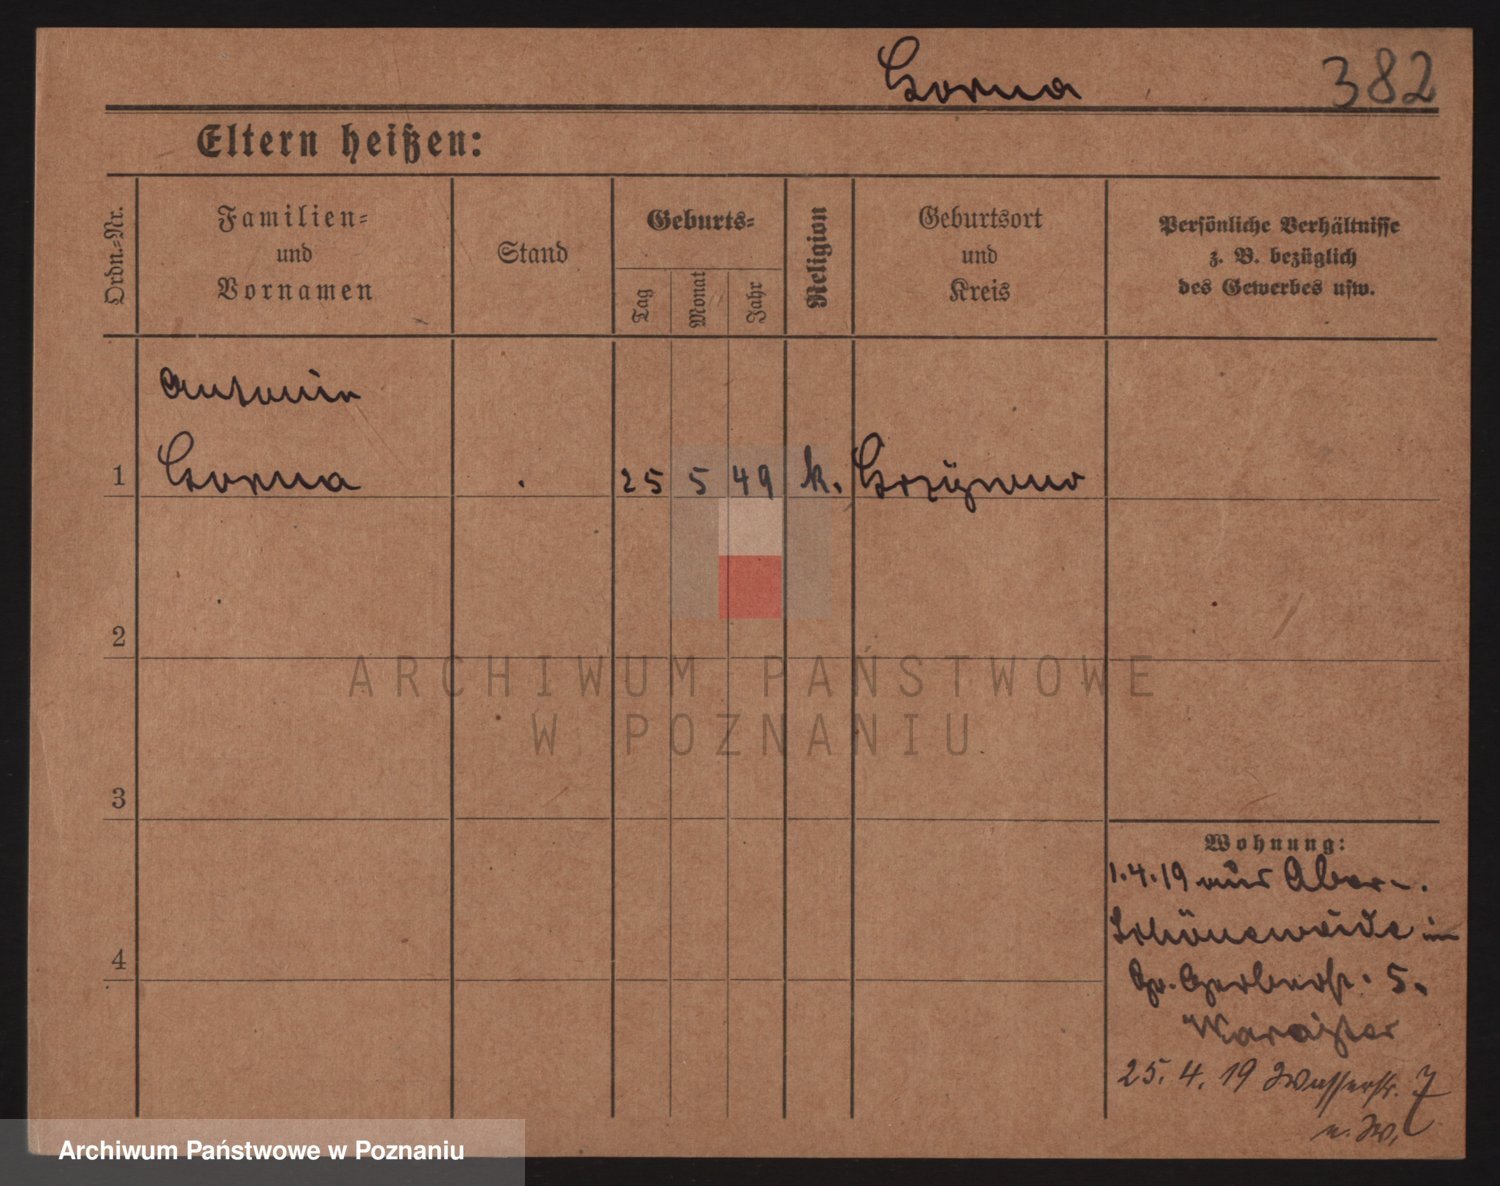 Gorna 382
Eltern heißen:
Ordn.-Nr.
Familien-
und
Vornamen
Stand
Geburts-
Tag
Monat
Jahr
Religion
Geburtsort
und
Kreis
Persönliche Verhältnisse
z. B. bezüglich
des Gewerbes usw.
Antonin
1 Gorna 25 5 49 k.
2
ARCHIWUM PAŃSTWOWE
W POZNANIU
3
Wohnung:
1.4.19 aus
Schöneweide in
Gr. Gerberstr. 5.
4
25. 4. 19 Wasserstr. 7
Archiwum Państwowe w Poznaniu